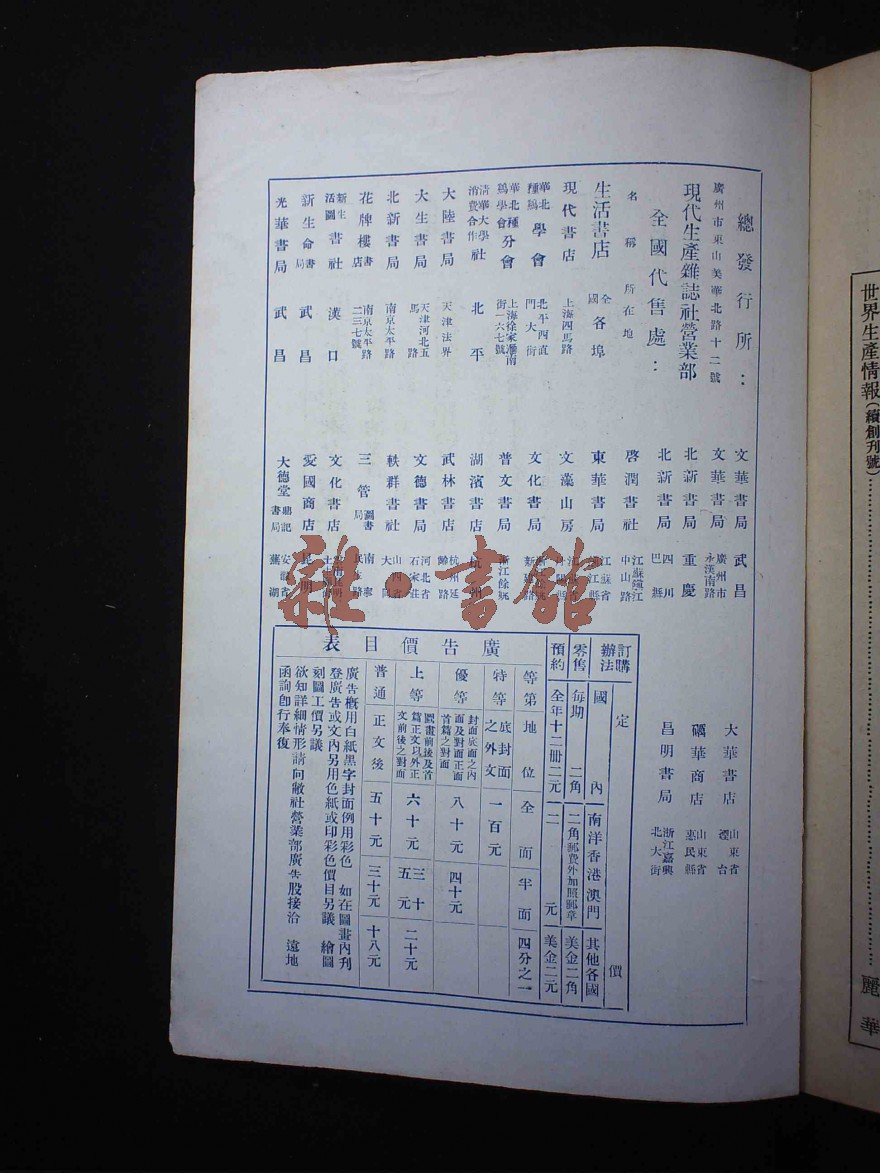 總發行所：
廣州市東山美華北路十二號
現代生產雜誌社營業部
全國代售處：
名稱 所在地
生活書店 全國各埠
現代書店 上海四馬路
華北種鷄學會 北平西直門大街
華北種鷄學會分會 上海徐家滙南街一六七號
清華大學消費合作社 北平
大陸書局 天津法界
大生書局 天津河北五馬路
北新書局 南京太平路
花牌樓書店 南京太平路二三七號
新生活圖書社 漢口
新生命書局 武昌
光華書局 武昌
文華書局 武昌
文華書局 廣州市永漢南路
北新書局 重慶
北新書局 四川巴縣
啓潤書社 江蘇鎮江中山路
東華書局 江蘇省江縣
文藻山房
文化書局
普文書局 浙江餘姚
湖濱書店 杭州
武林書店 杭州延齡路
文德書局 河北省石家莊
軼群書社 山西省大同
三管圖書局 南寧民路
文化書店
愛國商店 昆明
大德堂鼎記書局 安徽省蕪湖
大華書店 山東省煙台
礪華商店 山東省惠民縣
昌明書局 浙江嘉興北大街
訂購辦法 定價
國內 南洋香港澳門 其他各國
零售 每期 二角 二角郵費外加照郵章 美金二角
預約 全年十二冊二元 二元 美金二元
廣告價目表
等第 地位 全面 半面 四分之一
特等 底封面之外文 一百元
優等 封面底面之內面及對面正面首篇之對面 八十元 四十元
上等 圖畫前後及首篇正文以外正文前後之對面 六十元 三十五元 二十元
普通 正文後 五十元 三十元 十八元
廣告概用白紙黑字封面例用彩色 如在圖畫內刋
登廣告或文內另用色紙或印彩色價目另議 繪圖
刻圖工價另議
欲知詳細情形請向敝社營業部廣告股接洽 遠地
函詢卽行奉復
世界生產情報（續創刊號）
麗華
雜·書館